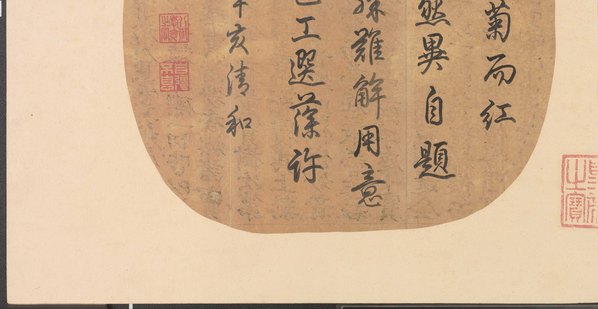 菊而紅
然異自題
難解用意
工選藻許
亥清和
之寶